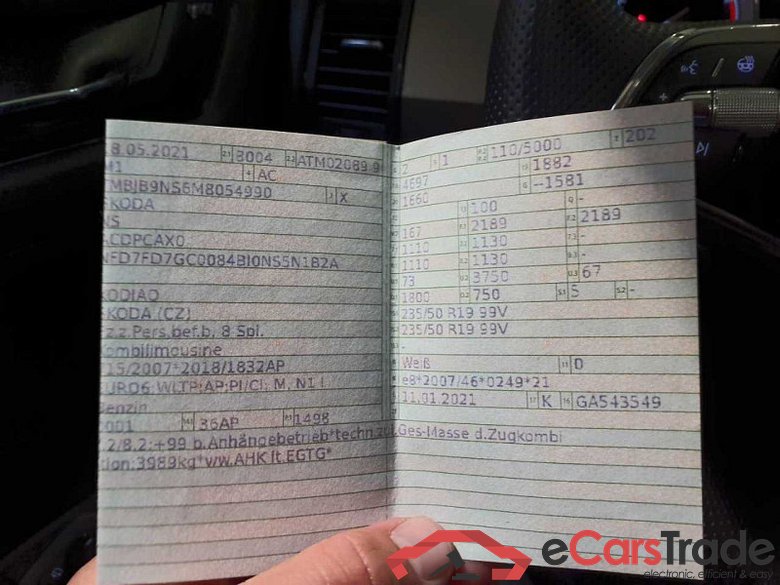 8.05.2021 2.1 8004 2.2 ATM02089 9
M1 4 AC
TMBJB9NS6M8054990 3 X
SKODA
NS
ACDPCAX0
NFD7FD7GC0084BJ0NS5N1B2A
KODIAQ
SKODA (CZ)
Fz.z.Pers.bef.b. 8 Spl.
Kombilimousine
715/2007*2018/1832AP
EURO6;WLTP;AP;PI/CI; M, N1 I
Benzin
0001 14.1 36AP P.1 1498
.2/8.2:+99 b.Anhängebetrieb*techn.zul.Ges-Masse d.Zugkombi
tion:3989kg*v/w.AHK lt.EGTG*
2 1 110/5000 T 202
4697 1882
1660 --1581
100 -
167 2189 2189
1110 1130 -
1110 1130 -
73 3750 67
1800 O.2 750 S.1 5 S.2 -
235/50 R19 99V
235/50 R19 99V
Weiß 11 0
e8*2007/46*0249*21
11.01.2021 17 K 16 GA543549
eCarsTrade
electronic, efficient & easy